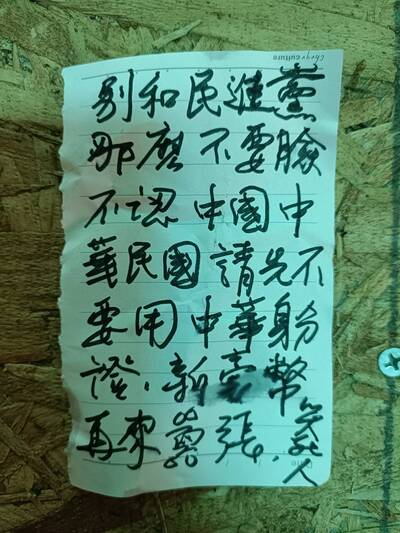 別和民進黨
那麼不要臉
不認中國中
華民國請先不
要用中華身分
證、新臺幣
再來囂張，笑死人